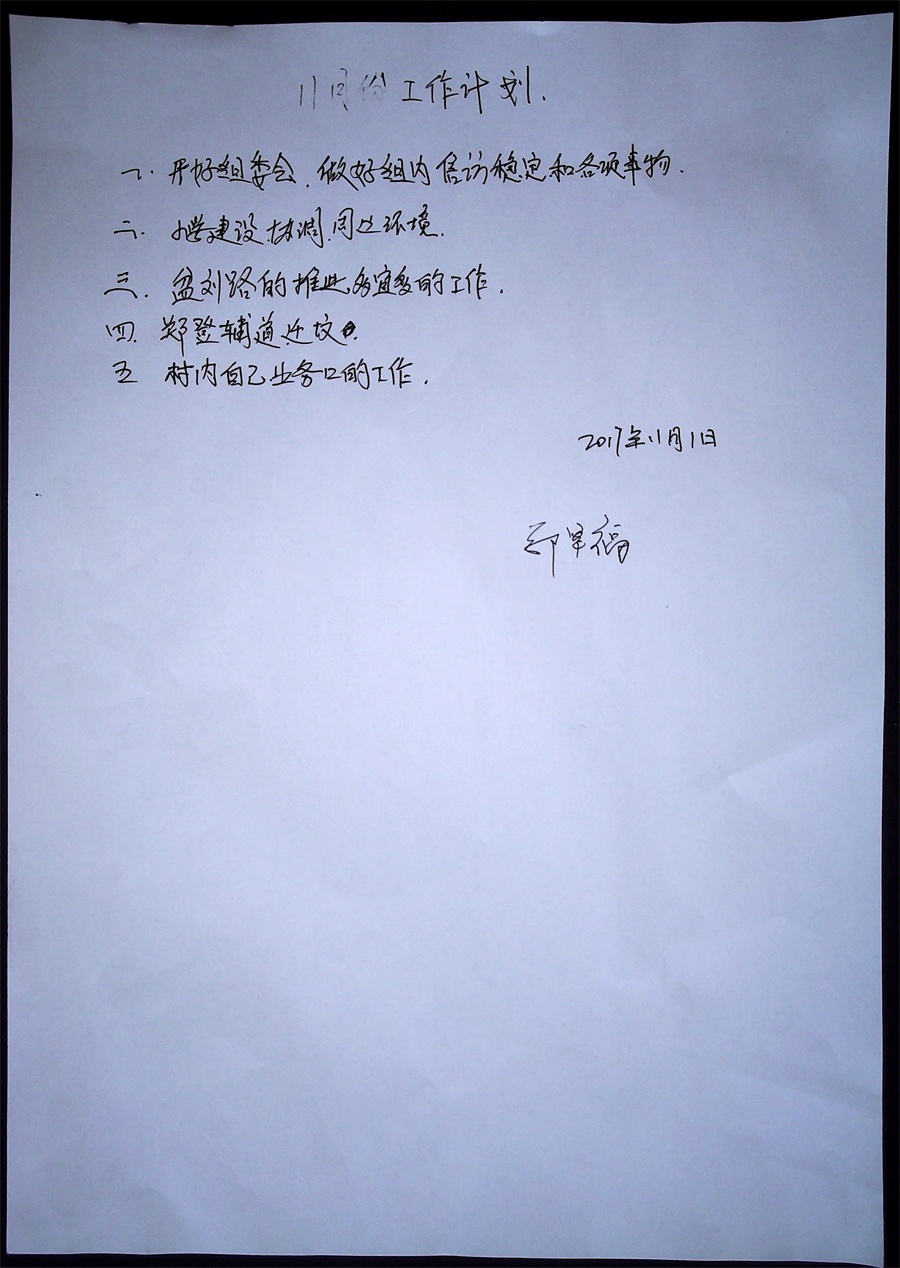 11月份工作计划.
一. 开好组委会.做好组内信访稳定和各项事物.
二. 小学建设.协调.周边环境.
三. 盆刘路的推进 的工作.
四. 郑登辅道迁坟.
五 村内自己业务口的工作.
2017年11月1日
郑早福